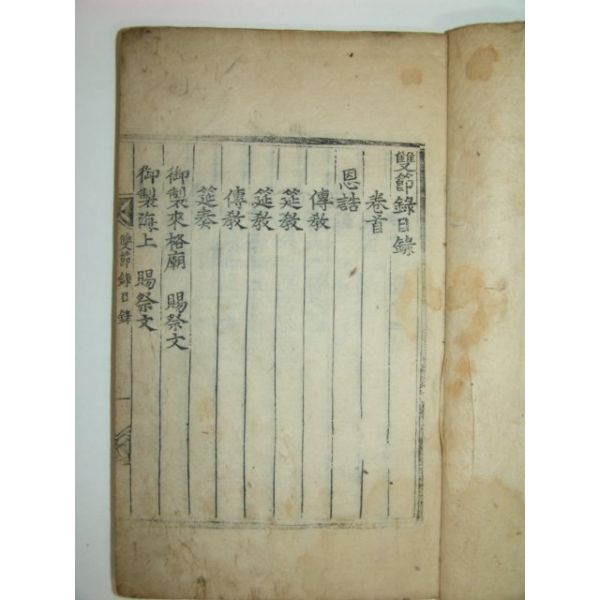 雙節錄目錄
卷首
恩誥
傳敎
筵敎
筵敎
傳敎
筵奏
御製來格廟 賜祭文
御製海上 賜祭文
雙節錄目錄 一